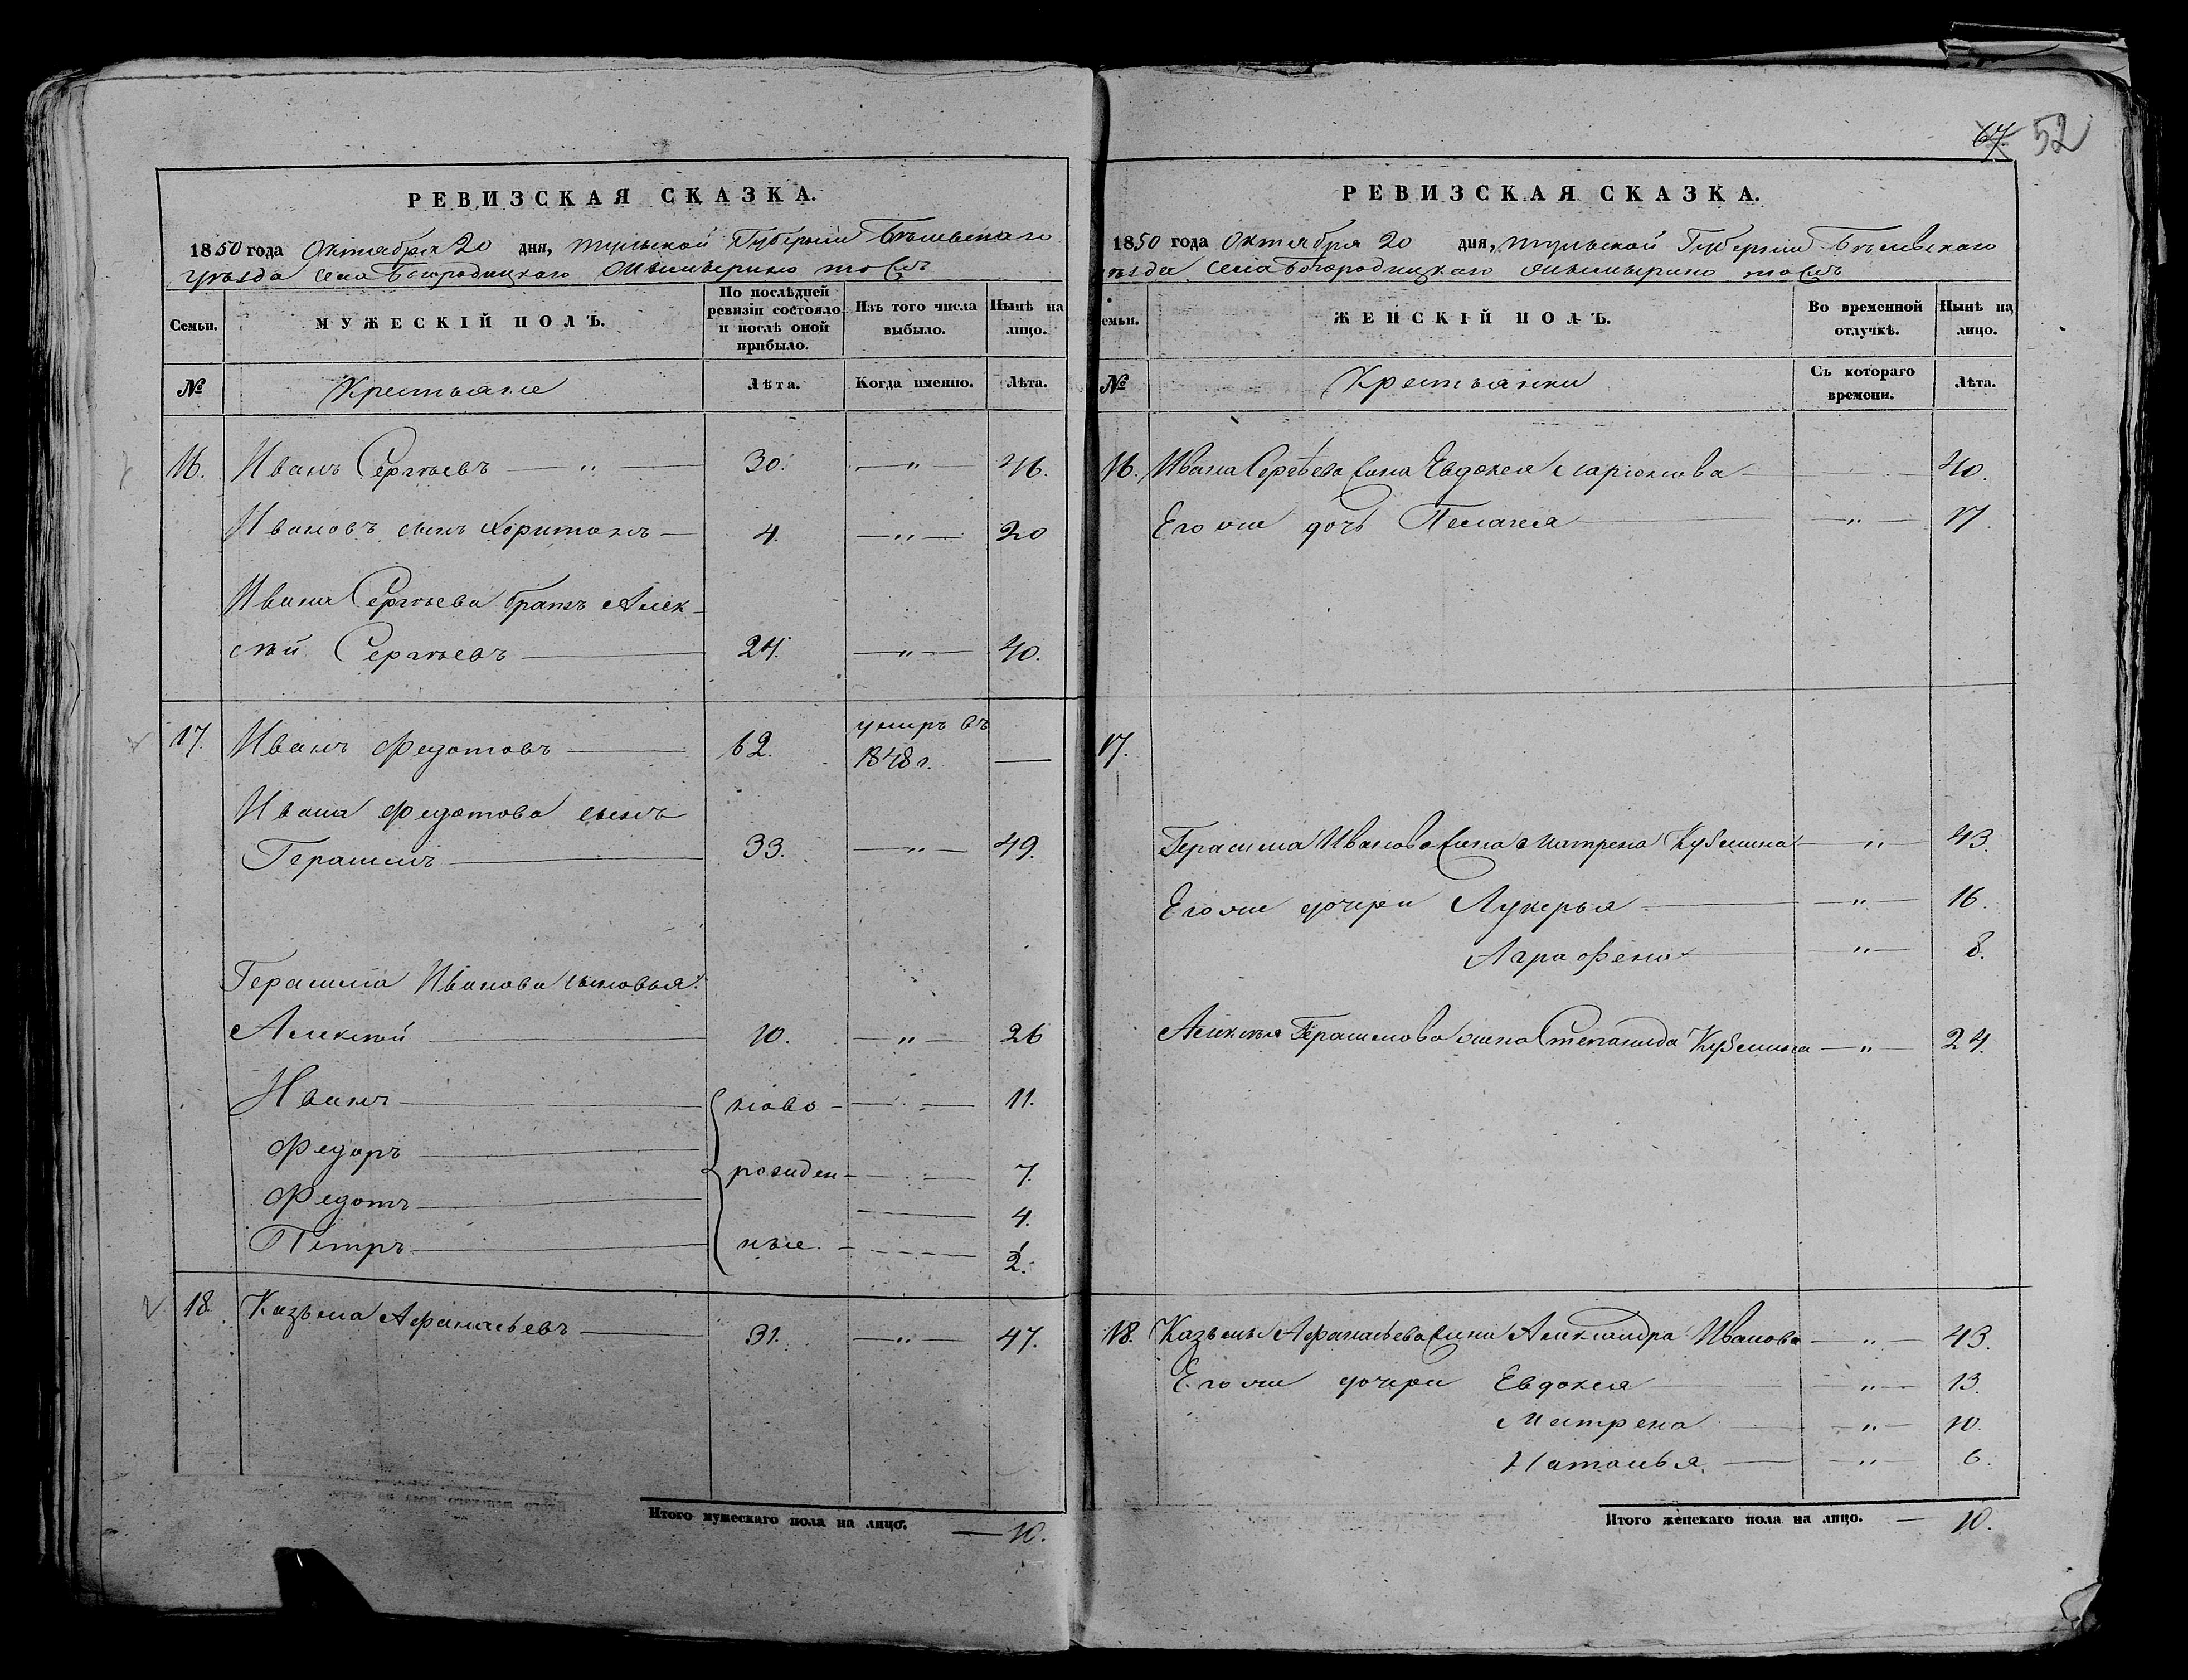 67. 52
РЕВИЗСКАЯ СКАЗКА.
1850 года Октября 20 дня, Тульской Губернiи Бѣлевскаго
уѣзда села Богородицкаго
Семьи. МУЖЕСКIЙ ПОЛЪ. По послѣдней ревизiи состояло и послѣ оной прибыло. Изъ того числа выбыло. Нынѣ на лицо.
№ Крестьяне Лѣта. Когда именно. Лѣта.
16. Иванъ Сергѣевъ — „ — 30. — „ — 46.
Ивановъ сынъ Харитонъ — 4. — „ — 20
Ивана Сергѣева братъ Алек-
сѣй Сергѣевъ — 24. — „ — 40.
17. Иванъ Федотовъ — 62. умиръ въ
1848 г. —
Ивана Федотова сынъ
Герасимъ — 33. — „ — 49.
Герасима Иванова сыновья:
Алексѣй — 10. — „ — 26
Иванъ — ново- — 11.
Федоръ —
рожден- — 7.
Федотъ — 4.
Петръ — ные. — 2.
18. Казьма Афанасьевъ — 31. — „ — 47.
Итого мужескаго пола на лицо. — 10.
РЕВИЗСКАЯ СКАЗКА.
1850 года Октября 20 дня, Тульской Губернiи Бѣлевскаго
уѣзда села Богородицкаго
Семьи. ЖЕНСКIЙ ПОЛЪ. Во временной отлучкѣ. Нынѣ на лицо.
№ Крестьянки Съ котораго времени. Лѣта.
16. Ивана Сергѣева жена Евдокея Ларiонова — 40.
Его же дочь Пелагея — „ — 17.
17.
Герасима Иванова жена Матрена Кузмина — „ — 43.
Его же дочери Лукерья — „ — 16.
Аграфена — „ — 8.
Алексѣя Герасимова жена Степанида Кузмина — „ — 24.
18. Казьмы Афанасьева жена Александра Иванова — „ — 43.
Его же дочери Евдокея — „ — 13.
Матрена — „ — 10.
Наталья — „ — 6.
Итого женскаго пола на лицо. — 10.